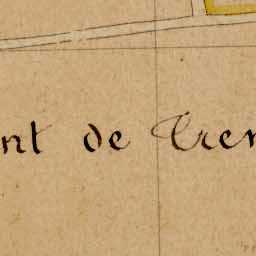 nt de Tren